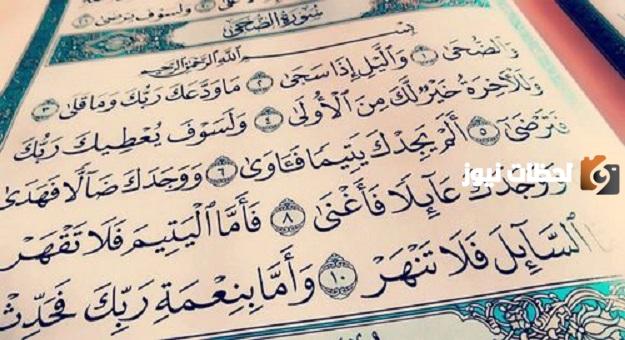 سُورَةُ الضُّحَىٰ
بِسْمِ اللَّهِ الرَّحْمَٰنِ الرَّحِيمِ
وَالضُّحَىٰ ١ وَاللَّيْلِ إِذَا سَجَىٰ ٢ مَا وَدَّعَكَ رَبُّكَ وَمَا قَلَىٰ ٣
وَلَلْآخِرَةُ خَيْرٌ لَّكَ مِنَ الْأُولَىٰ ٤ وَلَسَوْفَ يُعْطِيكَ رَبُّكَ
فَتَرْضَىٰ ٥ أَلَمْ يَجِدْكَ يَتِيمًا فَـَٔاوَىٰ ٦ وَوَجَدَكَ ضَآلًّا فَهَدَىٰ
وَوَجَدَكَ عَآئِلًا فَأَغْنَىٰ ٨ فَأَمَّا الْيَتِيمَ فَلَا تَقْهَرْ
السَّآئِلَ فَلَا تَنْهَرْ ١٠ وَأَمَّا بِنِعْمَةِ رَبِّكَ فَحَدِّثْ
لحظات نيوز